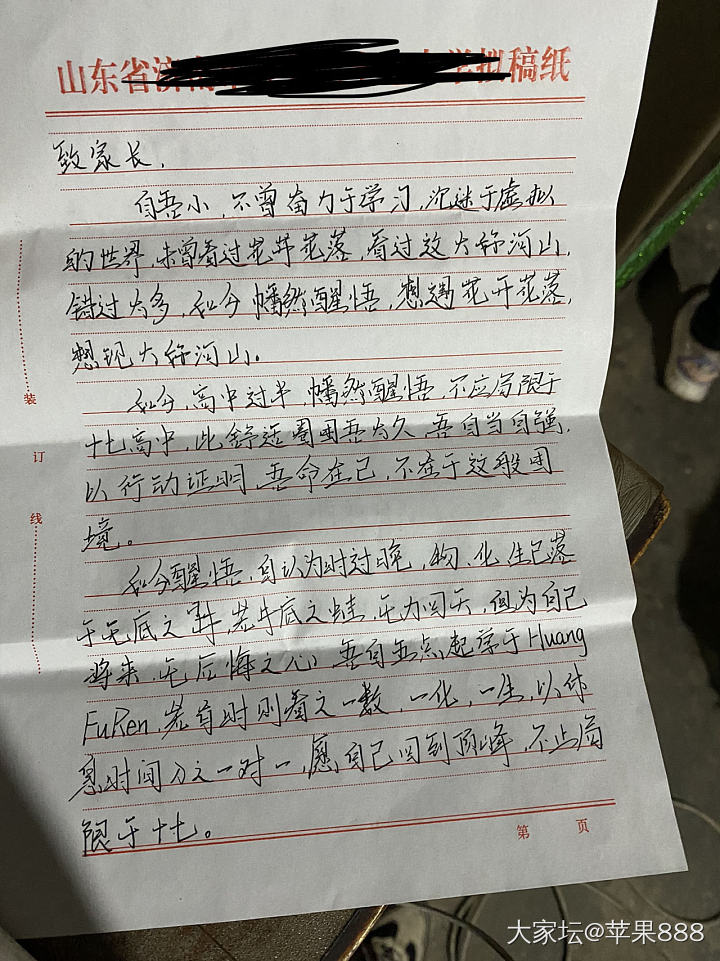 山东省济 学拟稿纸
致家长，
自吾小，不曾奋力于学习，沉迷于虚拟
的世界，未曾看过花开花落，看过这大好河山，
错过太多，如今幡然醒悟，想遇花开花落，
想现大好河山。
如今，高中过半，幡然醒悟，不应局限于
十七高中，此舒适圈困吾太久，吾自当自强，
以行动证明，吾命在己，不在于这般困
境。
如今醒悟，自认为时过晚，物、化、生已落
于无底之井，若井底之蛙，无力回天，但为自己
将来，无后悔之心，吾自五点起学于Huang
FuRen，若有时则看之一数，一化，一生，以休
息时间分之一对一，愿自己回到顶峰，不止局
限于十七。
装
订
线
第 页
大家坛@苹果888